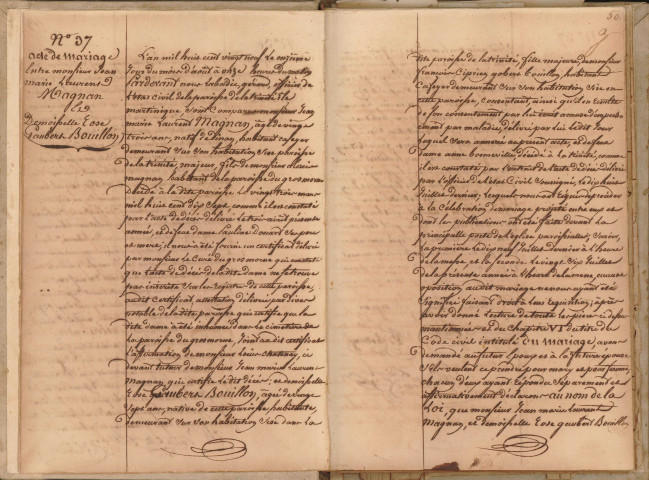 N° 37
acte de mariage
Entre monsieur Jean
marie Laurent
Magnan
Et
Demoiselle Rose
Gaubert Bouillon
L'an mil huit cent vingt neuf le
Jour du mois d'août à onze heures du matin
Pardevant nous officier de
L'état civil de la paroisse de la trinité île
martinique sont comparus monsieur Jean
marie Laurent Magnan, agé de vingt
trois ans, natif de habitant
demeurant sur son habitation sise paroisse
de la trinité, majeur, fils de monsieur
magnan habitant de la paroisse du gros morne
décédé à la dite paroisse le vingt trois mars
mil huit cent dix sept, comme il est constaté
par l'acte de décès délivré le trois août présente
année, et de feue dame Pauline
et mère; il nous a été fourni un certificat délivré
par monsieur le Curé du gros morne qui constate
que l'acte de décès de la dite dame ne se trouve
pas inscrit sur les registres de cette paroisse,
au dit certificat, attestation délivrée par divers
notable de la dite paroisse qui certifie que la
dite dame a été inhumée dans le cimetière de
la paroisse du gros morne, Joint au dit certificat
l'affirmation de monsieur
devant tuteur de monsieur Jean marie Laurent
Magnan, qui certifie le dit décès; et demoiselle
Rose Gaubert Bouillon, agée de vingt
Sept ans, native de cette paroisse habitante,
demeurant sur son habitation sise dans la
50
dite paroisse de la trinité, fille majeure de monsieur
françois Ciprien gobert Bouillon, habitant
demeurant sur son habitation sise en
cette paroisse, consentant, ainsi qu'il en résulte
de son consentement par lui écrit
par maladie, délivré par lui le dit jour
lequel sera annexé au présent acte, et de feue
dame anne décédée à la trinité, comme
il est constaté par l'extrait de l'acte de décès délivré
par l'officier de l'état civil soussigné, le dix huit
Juillet dernier, lesquels nous ont requis de procéder
à la Célébration du mariage projetté entre eux et
dont les publications ont été faites devant la
principalle porte de l'église paroissialle, savoir,
la première le dix neuf Juillet dernier à l'heure
de la messe et la seconde le vingt six Juillet
de la présente année à l'heure de la messe, aucune
opposition au dit mariage ne nous ayant été
signifiée faisant droit à leur réquisition, après
avoir donné lecture de toutes les pièces ci dessus
mentionnées et du Chapitre VI du titre du
Code civil intitulé Du mariage, avons
demandé au futur époux et à la future épouse
s'ils veulent se prendre pour mary et pour femme,
chacun d'eux ayant répondu séparément et
affirmativement déclarons au nom de la
Loi, que monsieur Jean marie Laurent
Magnan, et demoiselle Rose gaubert Bouillon